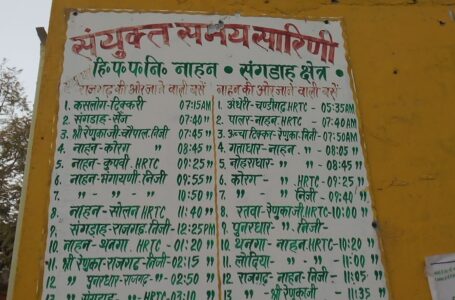 संयुक्त समय सारिणी
हि.प.प.नि. नाहन • संगडाह क्षेत्र •
राजगढ़ की ओर जाने वाली बसें
नाहन की ओर जाने वाली बसें
1. कसलोग-टिक्करी 07:15AM
2. संगडाह-सैंज 07:40 "
3. श्री रेणुका-चौपाल-निजी 07:55 "
4. नाहन-कोरग " 08:45 "
5. नाहन-कुपवी-HRTC 09:25 "
6. नाहन-भंगायणी-निजी 09:55 "
7. " - " " 10:50 "
8. नाहन-सोलन HRTC 11:40 "
9. संगडाह-राजगढ़-निजी-12:25PM
10. नाहन-थनगा-HRTC-01:20 "
11. श्री रेणुका-राजगढ़-निजी-02:15 "
12 " पुनरधार-राजगढ़-" 02:50 "
13 संगडाह HRTC-03:10
1. अंधेरी-चण्डीगढ़ HRTC - 05:35AM
2. पालर-नाहन-HRTC-07:40AM
3. ऊन्चा टिक्कर-रेणुका-निजी-07:50AM
4. गत्ताधार-नाहन-" - 08:05 "
5. नोहराधार- " - " - 08:45 "
6. कोरग - " - HRTC-09:25 "
7. " - " - निजी-09:40 "
8. रतवा-रेणुकाजी HRTC-10:00 "
9. पुनरधार- " - निजी-
10. थनगा-नाहन-HRTC-10:20 "
11. लोदिया - " - " - 11:00 "
12. राजगढ़-नाहन-निजी-11:05 "
13. " - श्री रेणुकाजी " 11:35